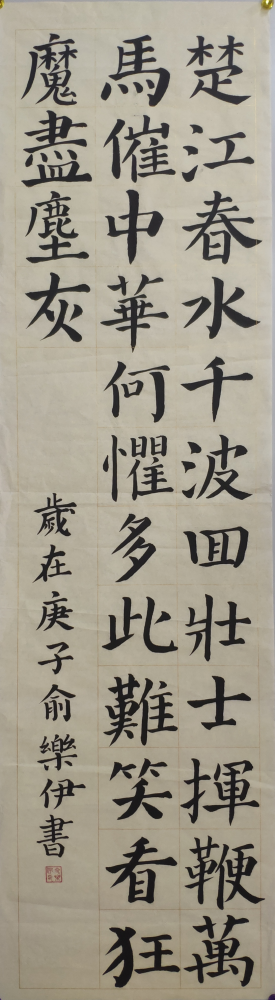 楚江春水千波回壯士揮鞭萬
馬催中華何懼多此難笑看狂
魔盡塵灰
歲在庚子俞樂伊書